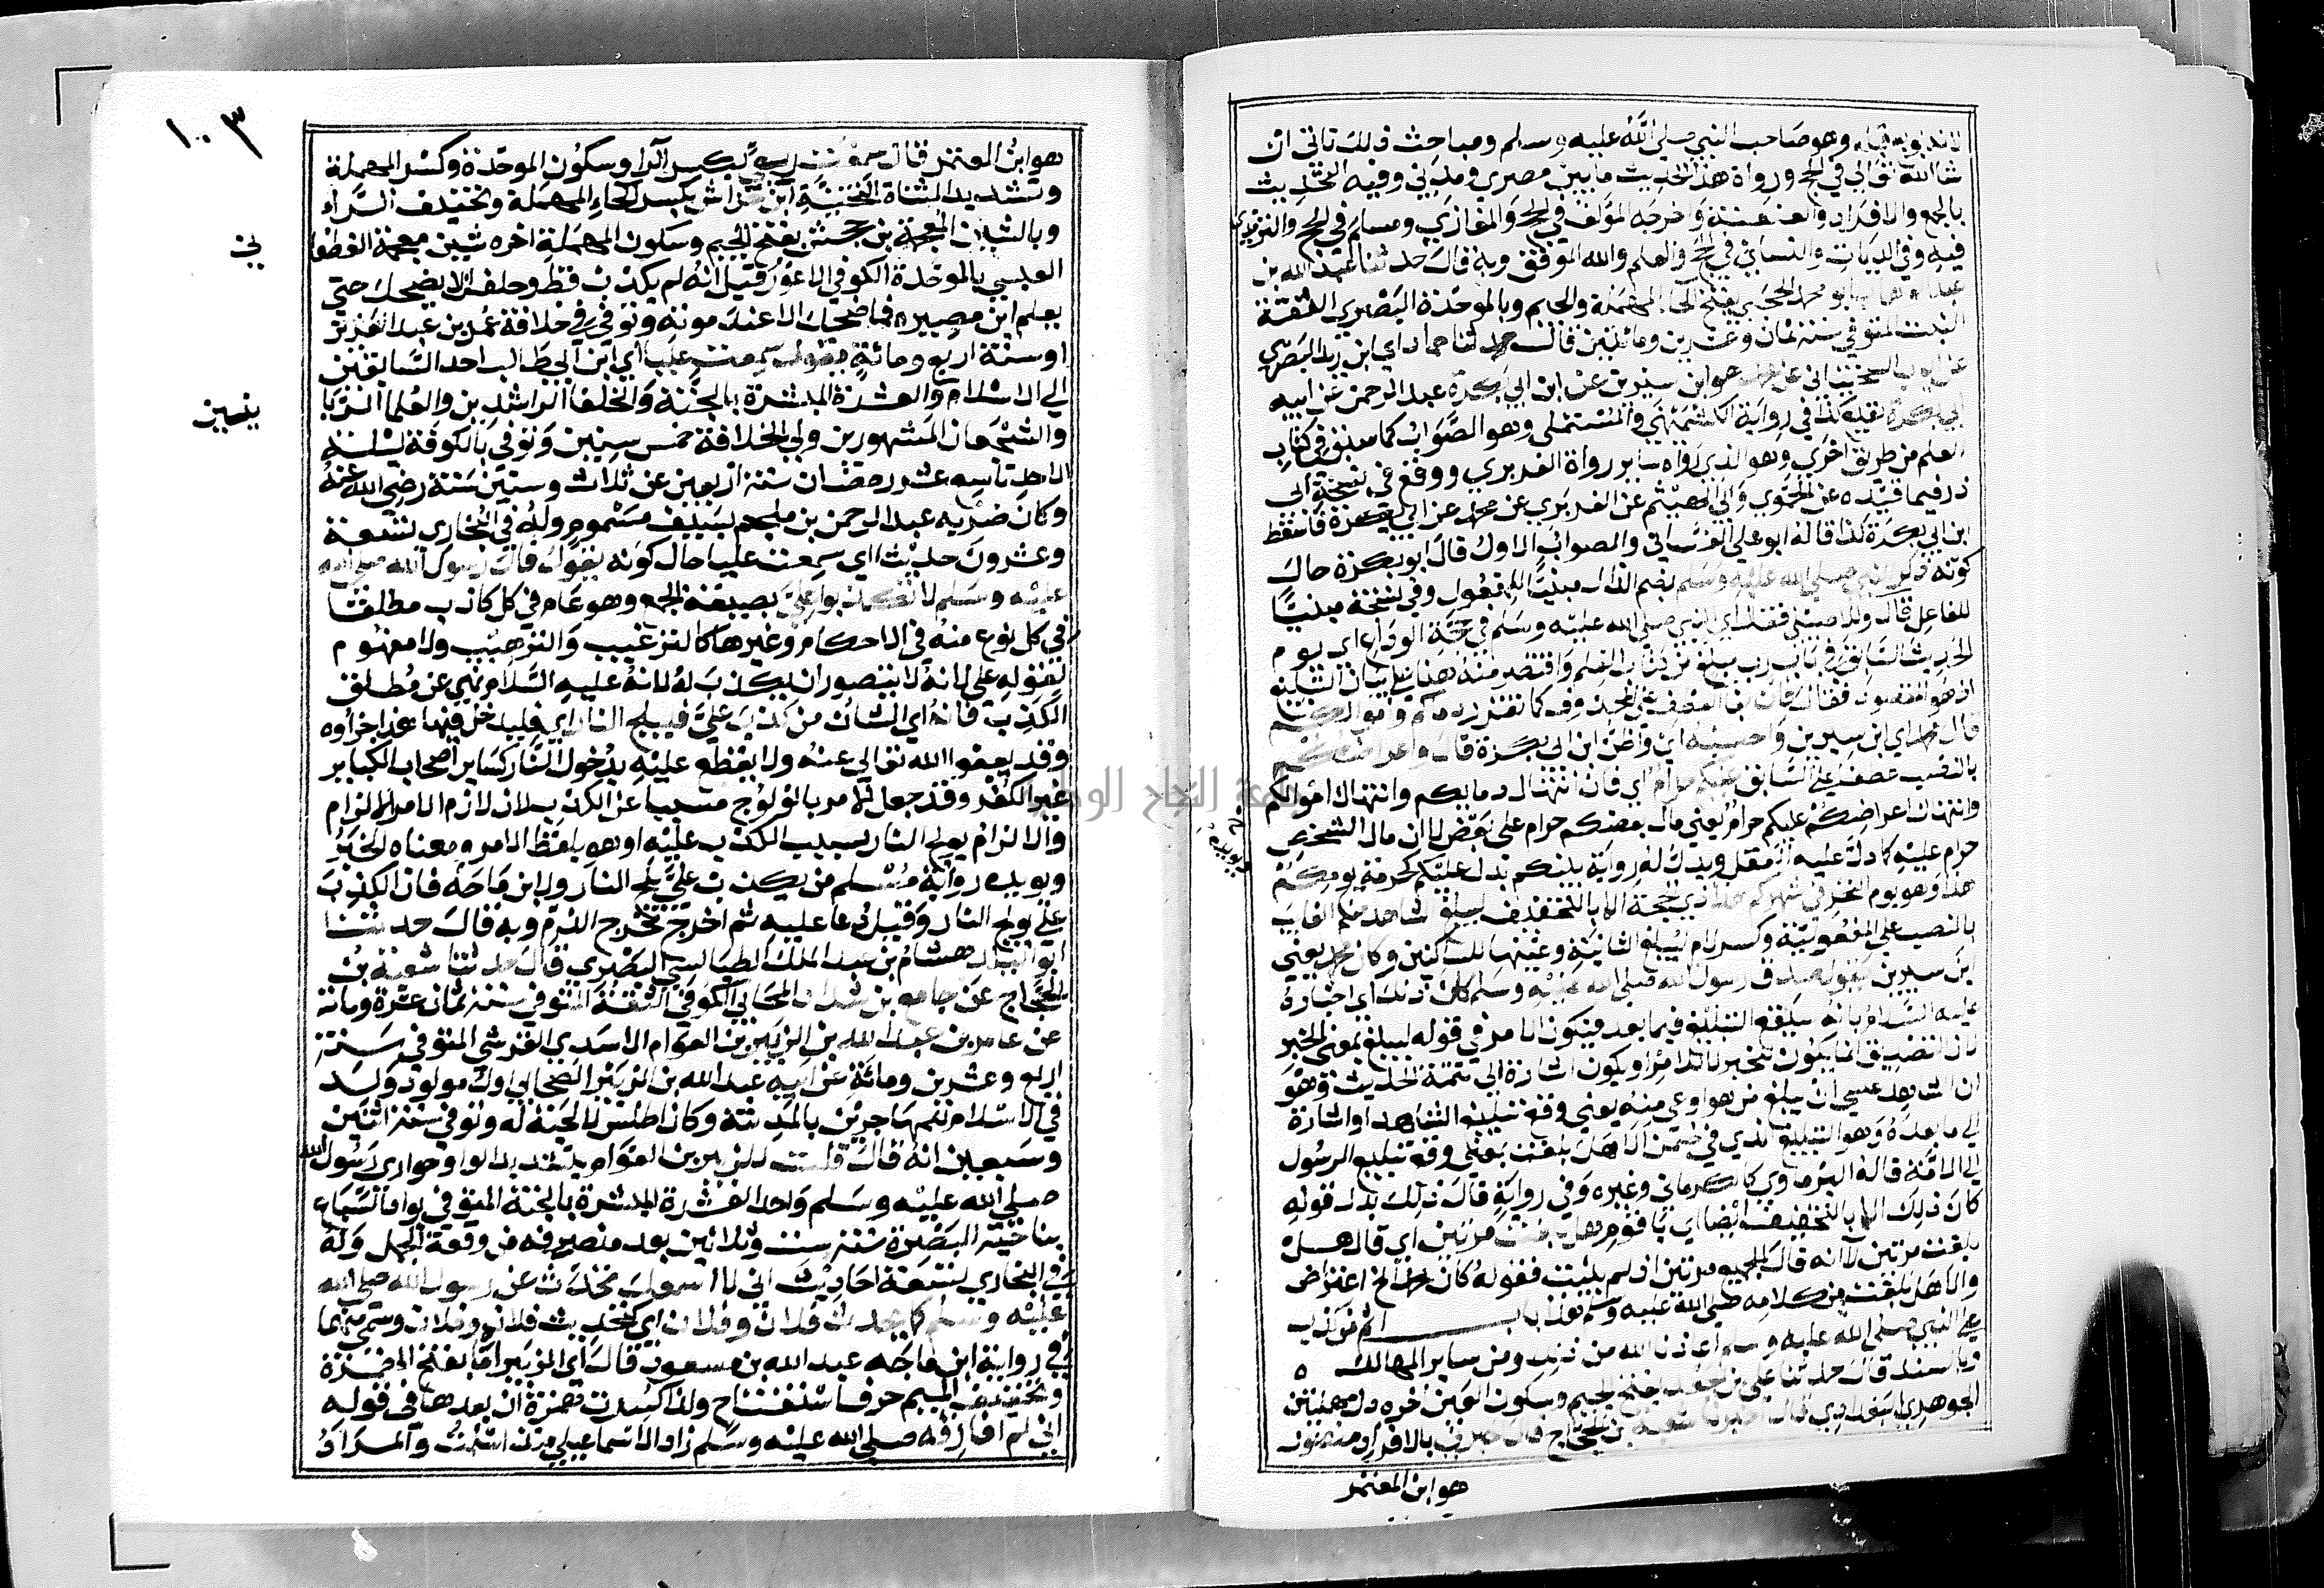 لانه بوبه قبله وهو صاحب النبي صلى الله عليه وسلم ومباحث ذلك تاتى ان
شا الله تعالى في الحج ورواة هذا الحديث ما بين مصري ومدني وفيه التحديث
بالجمع والافراد والعنعنة واخرجه المؤلف في الحج والمغازي ومسلم في الحج والترمذي
فيه وفي الديات والنسائي في الحج والعلم والله الموفق وبه قال حدثنا عبد الله بن
عبد الوهاب ابو محمد الحجبي بفتح الحا المهملة والجيم وبالموحدة البصري الثقة
الثبت المتوفي سنة ثمان وعشرين ومائتين قال حدثنا حماد اي ابن زيد البصري
عن ايوب السختياني عن محمد هو ابن سيرين عن ابن ابي بكرة عبد الرحمن عن ابيه
ابي بكرة نفيع كذا في رواية الكشميهني والمستملي وهو الصواب كما سبق في كتاب
العلم من طريق اخرى وهو الذي رواه ساير رواة الفربري ووقع في نسخة ابي
ذر فيما قيده عن الحموي وابي الهيثم عن الفربري عن محمد عن ابي بكرة فاسقط
ابن ابي بكرة كذا قاله ابو علي الغساني والصواب الاول قال ابو بكرة حال
كونه ذكر النبي صلى الله عليه وسلم بضم الذال مبنيا للمفعول وفي نسخة مبنيا
للفاعل قال وللاصيلي فقال اي النبي صلى الله عليه وسلم في حجة الوداع اي يوم
الحديث السابق في باب رب مبلغ من كتاب العلم واقتصر منه هنا على بيان التبليغ
اذ هو المقصود فقال فان بالعطف على المحذوف كما تقرر دماكم واموالكم
قال محمد اي ابن سيرين واحسبه اي واظن ابن ابي بكرة قال واعراضكم
بالنصب عطفا على السابق عليكم حرام اي فان انتهاك دمايكم وانتهاك اموالكم
وانتهاك اعراضكم عليكم حرام يعني مال بعضكم حرام على بعض لا ان مال الشخص
حرام عليه كما دل عليه العقل ويدل له رواية بينكم بدل عليكم كحرمة يومكم
هذا وهو يوم النحر في شهركم هذا ذي الحجة الا بالتخفيف ليبلغ الشاهد منكم الغايب
بالنصب على المفعولية وكسر لام ليبلغ الثانية وغينها للساكنين وكان محمد يعني
ابن سيرين يقول صدق رسول الله صلى الله عليه وسلم كان ذلك اي اخباره
عليه السلام بانه سيقع التبليغ فيما بعد فيكون الامر في قوله ليبلغ بمعنى الخبر
لان التصديق انما يكون للخبر لا للامر او يكون اشارة الى تتمة الحديث وهو
ان الشاهد عسى ان يبلغ من هو اوعى منه يعني وقع تبليغ الشاهد او اشارة
الى ما بعده وهو التبليغ الذي في ضمن الا هل بلغت يعني وقع تبليغ الرسول
الى الامة قاله البرماوي كالكرماني وغيره وفي رواية قال ذلك بدل قوله
كان ذلك الا بالتخفيف ايضا اي يا قوم هل بلغت مرتين اي قال هل
بلغت مرتين لا انه قال الجميع مرتين اذ لم يثبت فقوله كان محمد الخ اعتراض
والا هل بلغت من كلامه صلى الله عليه وسلم هذا باب اثم من كذب
على النبي صلى الله عليه وسلم اعاذنا الله من ذلك ومن ساير المهالك ٥
وبالسند قال حدثنا علي بن الجعد بفتح الجيم وسكون العين اخره دال مهملتين
الجوهري البغدادي قال اخبرنا شعبة بن الحجاج قال اخبرني بالافراد منصور
هو ابن المعتمر
١٠٣
هو ابن المعتمر قال سمعت ربعي بكسر الرا وسكون الموحدة وكسر المهملة
وتشديد المثناة التحتية ابن حراش بكسر الحاء المهملة وتخفيف الراء
وبالشين المعجمة بن جحش بفتح الجيم وسكون المهملة اخره شين معجمة الغطفا
ني
العبسي بالموحدة الكوفي الاعور قيل انه لم يكذب قط وحلف الا يضحك حتى
يعلم اين مصيره فما ضحك الا عند موته وتوفي في خلافة عمر بن عبد العزيز
او سنة اربع ومائة يقول سمعت عليا اي ابن ابي طالب احد السابقين
الى الاسلام والعشرة المبشرة بالجنة والخلفا الراشدين والعلما الربا
ينيين
والشجعان المشهورين ولي الخلافة خمس سنين وتوفي بالكوفة ليلة
الاحد تاسع عشر رمضان سنة اربعين عن ثلاث وستين سنة رضي الله عنه
وكان ضربه عبد الرحمن بن ملجم بسيف مسموم وله في البخاري تسعة
وعشرون حديثا اي سمعت عليا حال كونه يقول قال رسول الله صلى الله
عليه وسلم لا تكذبوا علي بصيغة الجمع وهو عام في كل كاذب مطلقا
في كل نوع منه في الاحكام وغيرها كالترغيب والترهيب ولا مفهوم
لقوله علي لانه لا يتصور ان يكذب له لانه عليه السلام نهى عن مطلق
الكذب فانه اي الشان من كذب علي فليلج النار اي فليدخل فيها هذا جزاوه
وقد يعفو الله تعالى عنه ولا يقطع عليه بدخول النار كساير اصحاب الكباير
غير الكفر وقد جعل الامر بالولوج مسببا عن الكذب لان لازم الامر الالزام
والالزام يولج النار بسبب الكذب عليه او هو بلفظ الامر ومعناه الخبر
ويويده رواية مسلم من يكذب علي يلج النار ولابن ماجه فان الكذب
علي يولج النار وقيل دعا عليه ثم اخرج مخرج الذم وبه قال حدثنا
ابو الوليد هشام بن عبد الملك الطيالسي البصري قال حدثنا شعبة بن
الحجاج عن جامع بن شداد المحاربي الكوفي الثقة المتوفي سنة ثمان عشرة ومائة
عن عامر بن عبد الله بن الزبير بن العوام الاسدي القرشي المتوفي سنة
اربع وعشرين ومائة عن ابيه عبد الله بن الزبير الصحابي اول مولود ولد
في الاسلام للمهاجرين بالمدينة وكان اطلس لا لحية له وتوفي سنة اثنين
وسبعين انه قال قلت للزبير بن العوام بتشديد الواو حواري رسول الله
صلى الله عليه وسلم واحد العشرة المبشرة بالجنة المتوفي بوادي السباع
بناحية البصرة سنة ست وثلاثين بعد منصرفه من وقعة الجمل وله
في البخاري تسعة احاديث اني لا اسمعك تحدث عن رسول الله صلى الله
عليه وسلم كما يحدث فلان وفلان اي كتحديث فلان وفلان وسمى منهما
في رواية ابن ماجه عبد الله بن مسعود قال اي الزبير اما بفتح الهمزة
وتخفيف الميم حرف استفتاح ولذا كسرت همزة ان بعدها في قوله
اني لم افارقه صلى الله عليه وسلم زاد الاسماعيلي منذ اسلمت والمراد
جامعة النجاح الوطنية